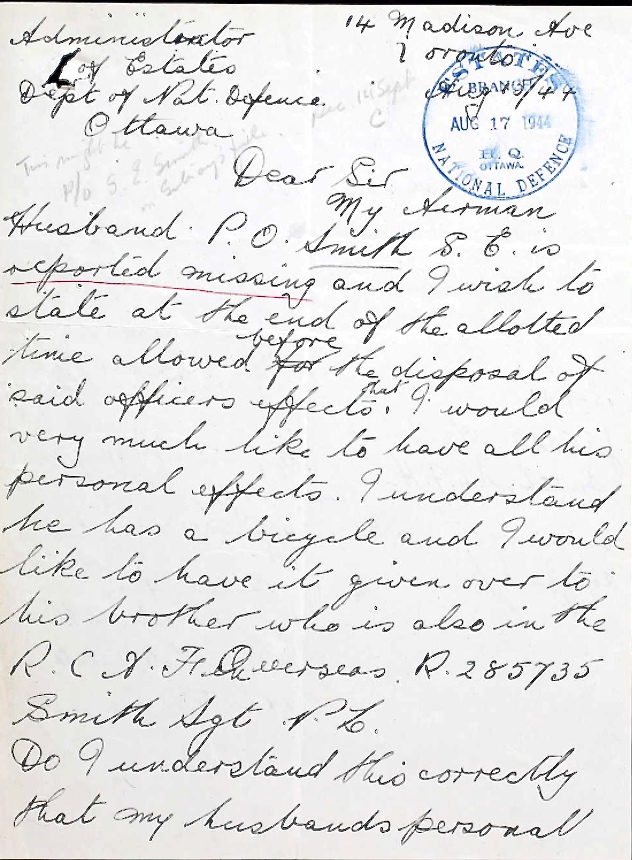 14 Madison Ave
Toronto
Aug /44
Administrator
of Estates
Dept of Nat. Defence
Ottawa
ESTATES
BRANCH
AUG 17 1944
H. Q.
OTTAWA
NATIONAL DEFENCE
Rec. 14 Sept
C
This might be
P/O S. E. Smith
on file
Dear Sir
My Airman
Husband P. O. Smith S. E. is
reported missing and I wish to
state at the end of the allotted
time allowed for before the disposal of
said officers effects. that I would
very much like to have all his
personal effects. I understand
he has a bicycle and I would
like to have it given over to
his brother who is also in the
R. C. A. F. Overseas. R. 285735
Smith Sgt P. L.
Do I understand this correctly
that my husbands personal